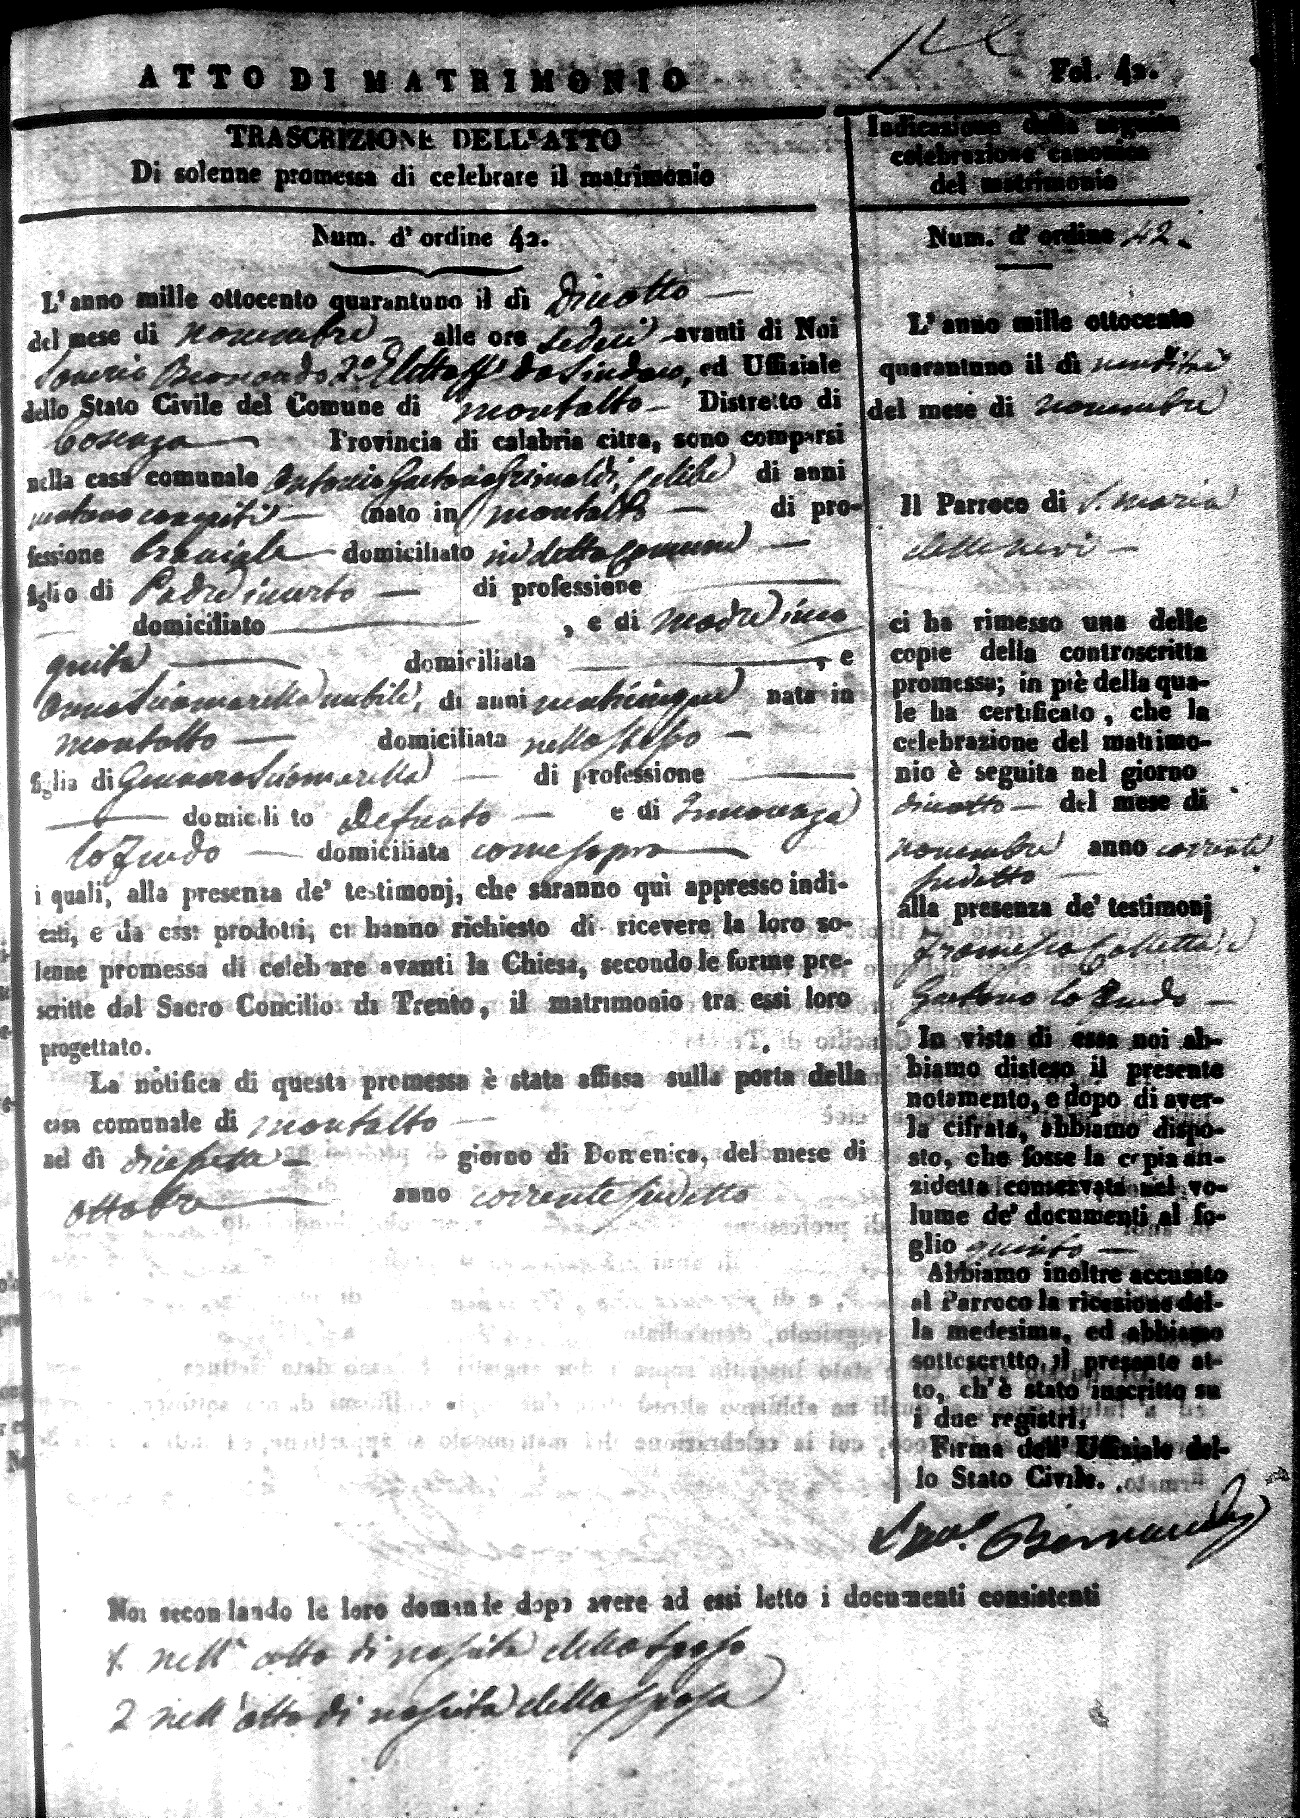 ATTO DI MATRIMONIO
Fol. 42.
TRASCRIZIONE DELL'ATTO
Di solenne promessa di celebrare il matrimonio
Num. d'ordine 42.
L'anno mille ottocento quarantuno il dì dieciotto
del mese di novembre alle ore sedeci avanti di Noi
Saverio 2º Eletto ff da Sindaco, ed Uffiziale
dello Stato Civile del Comune di Montalto Distretto di
Cosenza Provincia di calabria citra, sono comparsi
nella casa comunale Antonio Gaetano Grimaldi, celibe di anni
nato in Montalto di pro-
fessione Bracciale domiciliato in detto Comune
figlio di Padre incerto di professione
domiciliato , e di madre inco
gnita domiciliata , e
Anna Sciomarella nubile, di anni venticinque nata in
Montalto domiciliata nello stesso
figlia di Gennaro Sciomarella di professione
domicili to Defunto e di Innocenza
lo Feudo domiciliata come sopra
i quali, alla presenza de' testimonj, che saranno quì appresso indi-
cati, e da essi prodotti, ci hanno richiesto di ricevere la loro so-
lenne promessa di celebrare avanti la Chiesa, secondo le forme pre-
scritte dal Sacro Concilio di Trento, il matrimonio tra essi loro
progettato.
La notifica di questa promessa è stata affissa sulla porta della
casa comunale di Montalto
nel dì diecisette giorno di Domenica, del mese di
ottobre anno corrente sudetto
Noi secondando le loro domande dopo avere ad essi letto i documenti consistenti
1. nell'atto di nascita dello sposo
2 nell'atto di nascita della sposa
Indicazione della seguita
celebrazione canonica
del matrimonio
Num. d'ordine 42.
L'anno mille ottocento
quarantuno il dì ventitrè
del mese di novembre
Il Parroco di S. Maria
della nevi
ci ha rimesso una delle
copie della controscritta
promessa; in piè della qua-
le ha certificato, che la
celebrazione del matrimo-
nio è seguita nel giorno
dieciotto del mese di
novembre anno corrente
sudetto
alla presenza de' testimonj
Francesco Colletta e
Gaetano lo Feudo
In vista di essa noi ab-
biamo disteso il presente
notamento, e dopo di aver-
la cifrata, abbiamo dispo-
sto, che fosse la copia an-
zidetta conservata nel vo-
lume de' documenti al fo-
glio quinto
Abbiamo inoltre accusato
al Parroco la ricezione del-
la medesima, ed abbiamo
sottoscritto il presente at-
to, ch'è stato inscritto su
i due registri.
Firma dell'Uffiziale del-
lo Stato Civile.